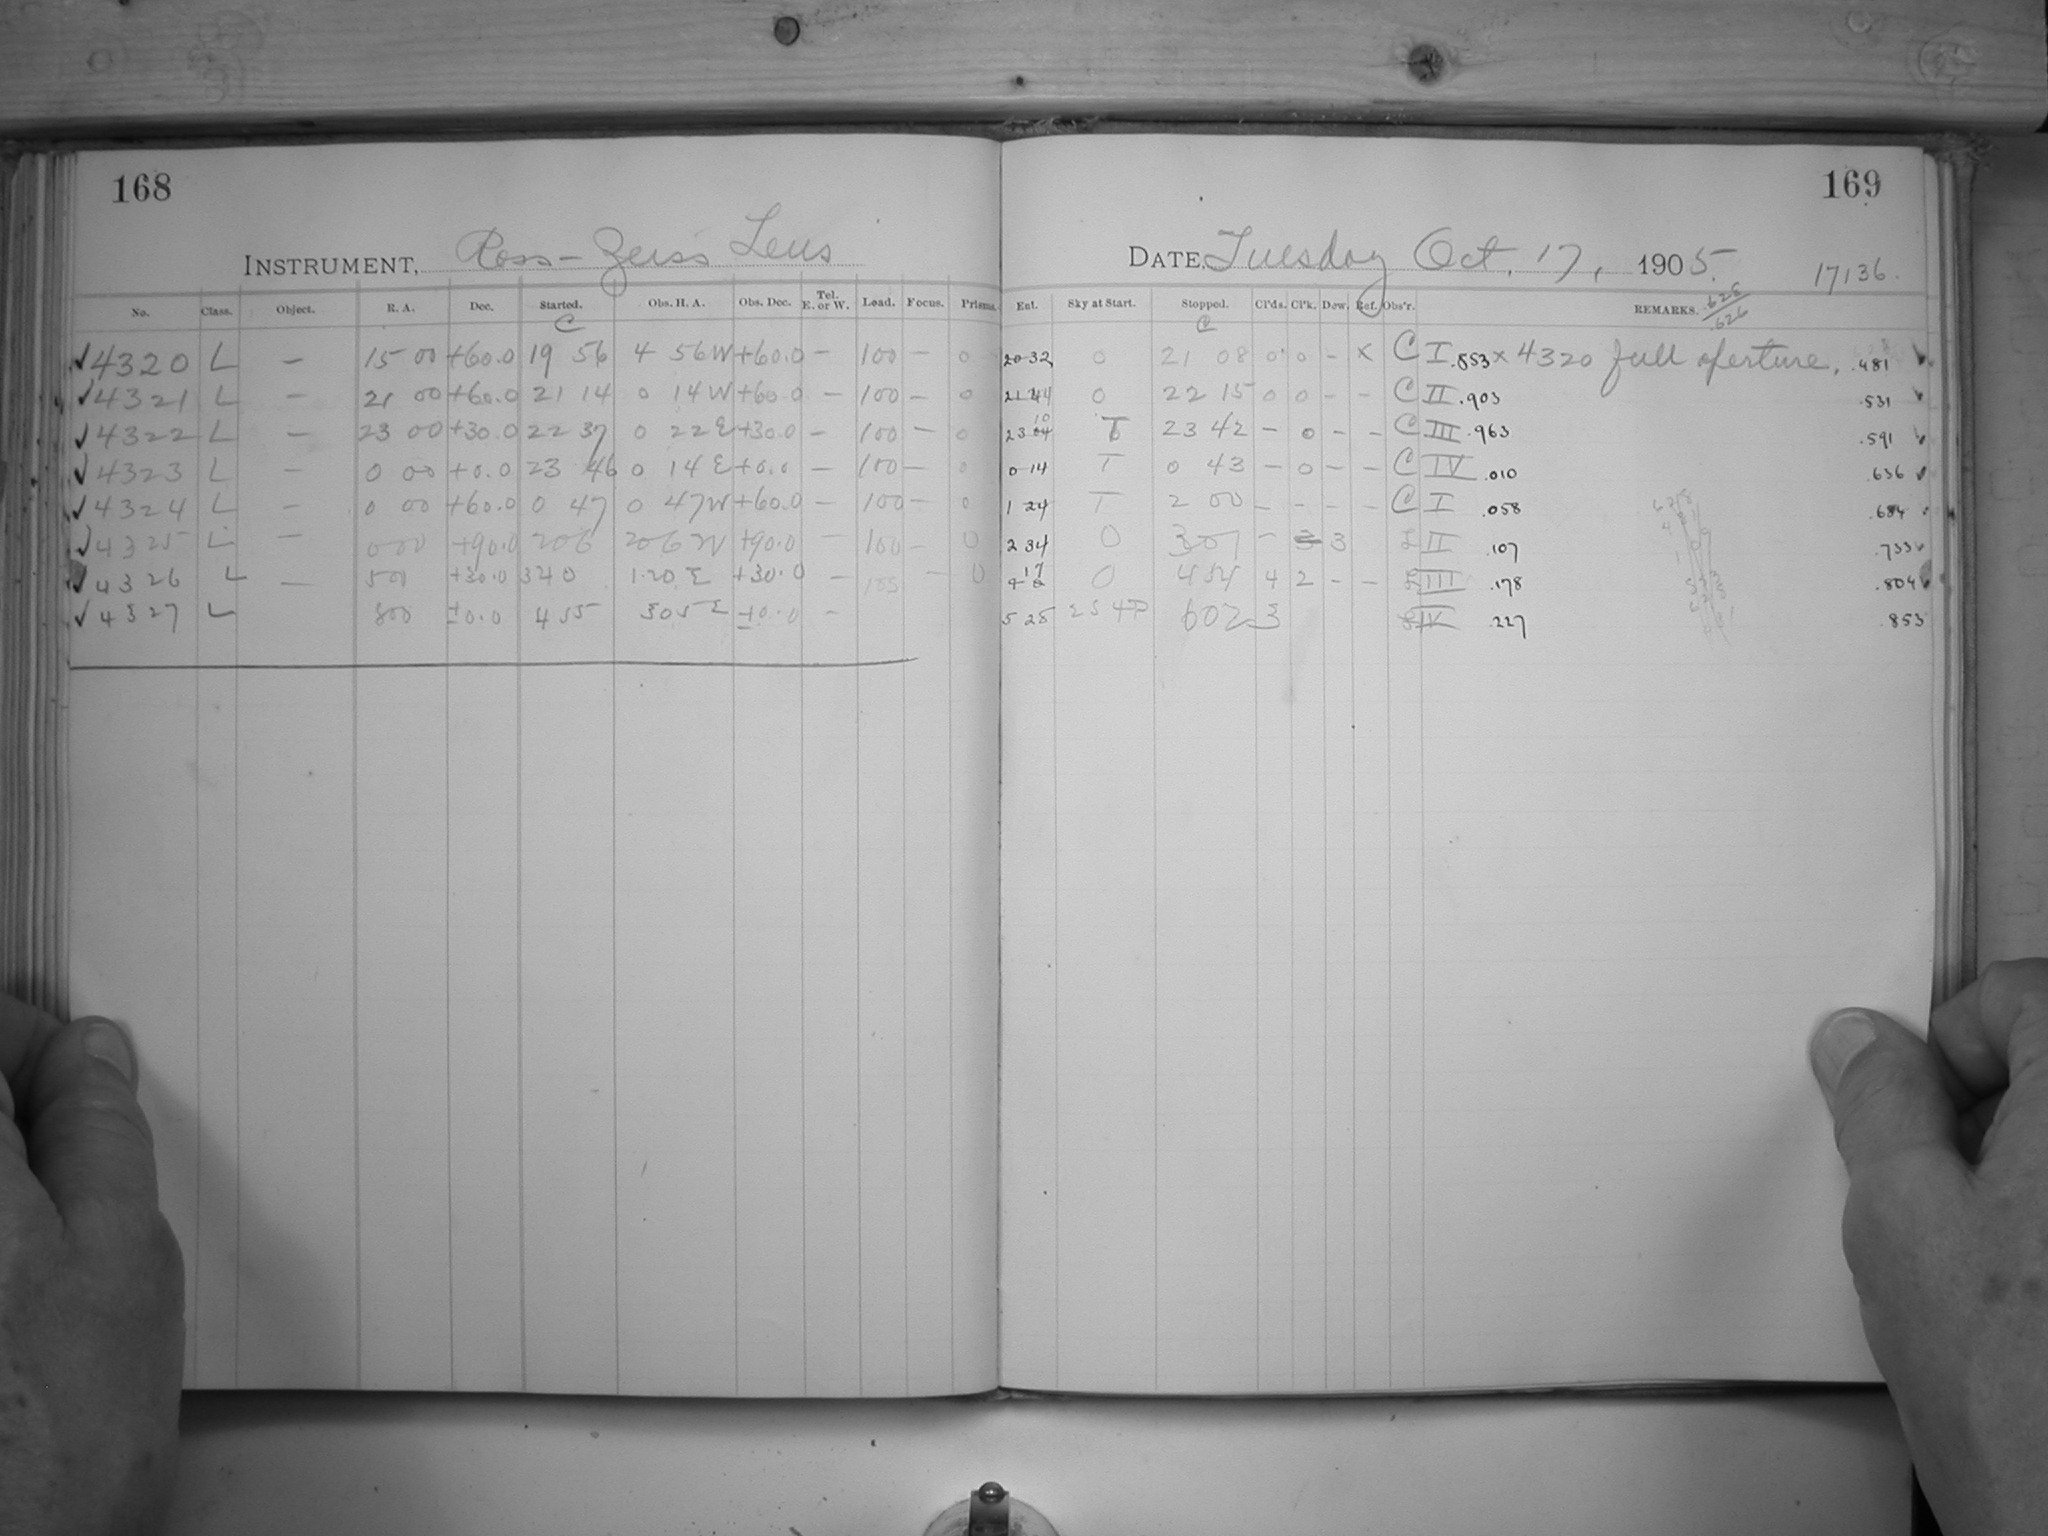 168
169
INSTRUMENT, Ross-Zeiss Lens
DATE, Tuesday Oct. 17, 1905.
17136.
No. Class. Object. R. A. Dec. Started. Obs. H. A. Obs. Dec. Tel. E. or W. Lead. Focus. Prisms. Ent. Sky at Start. Stopped. Cl'ds. Cl'k. Dew. Ref. Obs'r. REMARKS. .628
C C .626
✓4320 L — 15 00 +60.0 19 56 4 56W +60.0 — 100 — 0 20 32 0 21 08 0 0 - X C I .853 × 4320 full aperture. .481
✓4321 L — 21 00 +60.0 21 14 0 14W +60.0 — 100 — 0 21 44 0 22 15 0 0 - - C II .903 .531
✓4322 L — 23 00 +30.0 22 37 0 22E +30.0 — 100 — 0 23 10 T 23 42 - 0 - - C III .963 .591
✓4323 L — 0 00 +0.0 23 46 0 14E +0.0 — 100 — 0 0 14 T 0 43 - 0 - - C IV .010 .636
✓4324 L — 0 00 +60.0 0 47 0 47W +60.0 — 100 — 0 1 24 T 2 00 - - - - C I .058 .684
✓4325 L — 000 +90.0 206 206W +90.0 — 100 — 0 2 34 0 307 - 3 3 II .107 .733
✓4326 L — 500 +30.0 340 1.20 E +30.0 — 100 — 0 4 17 0 454 4 2 - - III .178 .804
✓4327 L 800 ±0.0 455 305E ±0.0 — 5 28 602 3 IV .227 .853